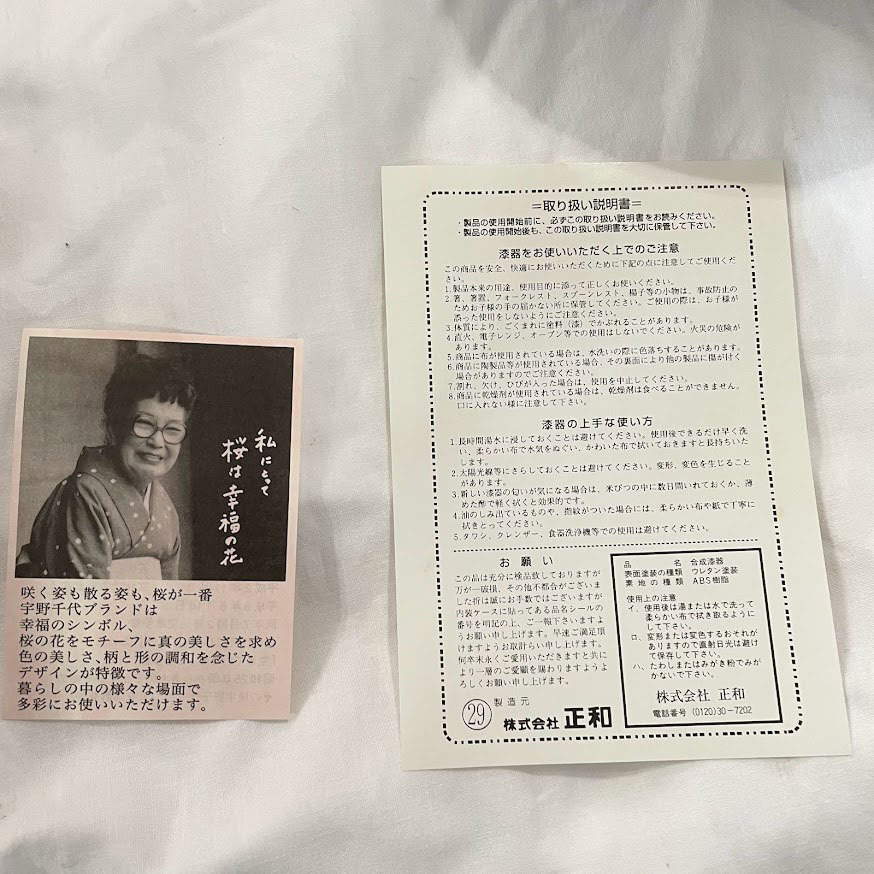 私にとって
桜は幸福の花
咲く姿も散る姿も、桜が一番
宇野千代ブランドは
幸福のシンボル、
桜の花をモチーフに真の美しさを求め
色の美しさ、柄と形の調和を念じた
デザインが特徴です。
暮らしの中の様々な場面で
多彩にお使いいただけます。
=取り扱い説明書=
・製品の使用開始前に、必ずこの取り扱い説明書をお読みください。
・製品の使用開始後も、この取り扱い説明書を大切に保管して下さい。
漆器をお使いいただく上でのご注意
この商品を安全、快適にお使いいただくために下記の点に注意してご使用くだ
さい。
1.製品本来の用途、使用目的に添って正しくお使いください。
2.箸、箸置、フォークレスト、スプーンレスト、楊子等の小物は、事故防止の
ためお子様の手の届かない所に保管してください。ご使用の際は、お子様が
誤った使用をしないようにご注意ください。
3.体質により、ごくまれに塗料(漆)でかぶれることがあります。
4.直火、電子レンジ、オーブン等での使用はしないでください。火災の危険が
あります。
5.商品に布が使用されている場合は、水洗いの際に色落ちすることがあります。
6.商品に陶製品等が使用されている場合、その裏面により他の製品に傷が付く
場合がありますのでご注意ください。
7.割れ、欠け、ひびが入った場合は、使用を中止してください。
8.商品に乾燥剤が使用されている場合は、乾燥剤は食べることができません。
口に入れない様に注意して下さい。
漆器の上手な使い方
1.長時間湯水に浸しておくことは避けてください。使用後できるだけ早く洗
い、柔らかい布で水気をぬぐい、かわいた布で拭いておきますと長持ちいた
します。
2.太陽光線等にさらしておくことは避けてください。変形、変色を生じること
があります。
3.新しい漆器の匂いが気になる場合は、米びつの中に数日間いれておくか、薄
めた酢で軽く拭くと効果的です。
4.油のしみ出ているものや、指紋がついた場合には、柔らかい布や紙で丁寧に
拭きとってください。
5.タワシ、クレンザー、食器洗浄機等での使用は避けてください。
お願い
この品は充分に検品致しておりますが
万が一破損、その他不都合がございま
した折は誠にお手数ではございますが
内装ケースに貼ってある品名シールの
番号を明記の上、ご一報下さいますよ
うお願い申し上げます。早速ご満足頂
けますようお取計らい申し上げます。
何卒末永くご愛用いただきますと共に
より一層のご愛顧を賜わりますようよ
ろしくお願い申し上げます。
29 製造元
株式会社 正和
品名 合成漆器
表面塗装の種類 ウレタン塗装
素地の種類 ABS樹脂
使用上の注意
イ、使用後は湯または水で洗って
柔らかい布で拭き取るように
して下さい。
ロ、変形または変色するおそれが
ありますので直射日光は避け
て保存して下さい。
ハ、たわしまたはみがき粉でみが
かないで下さい。
株式会社 正和
電話番号 (0120)30-7202